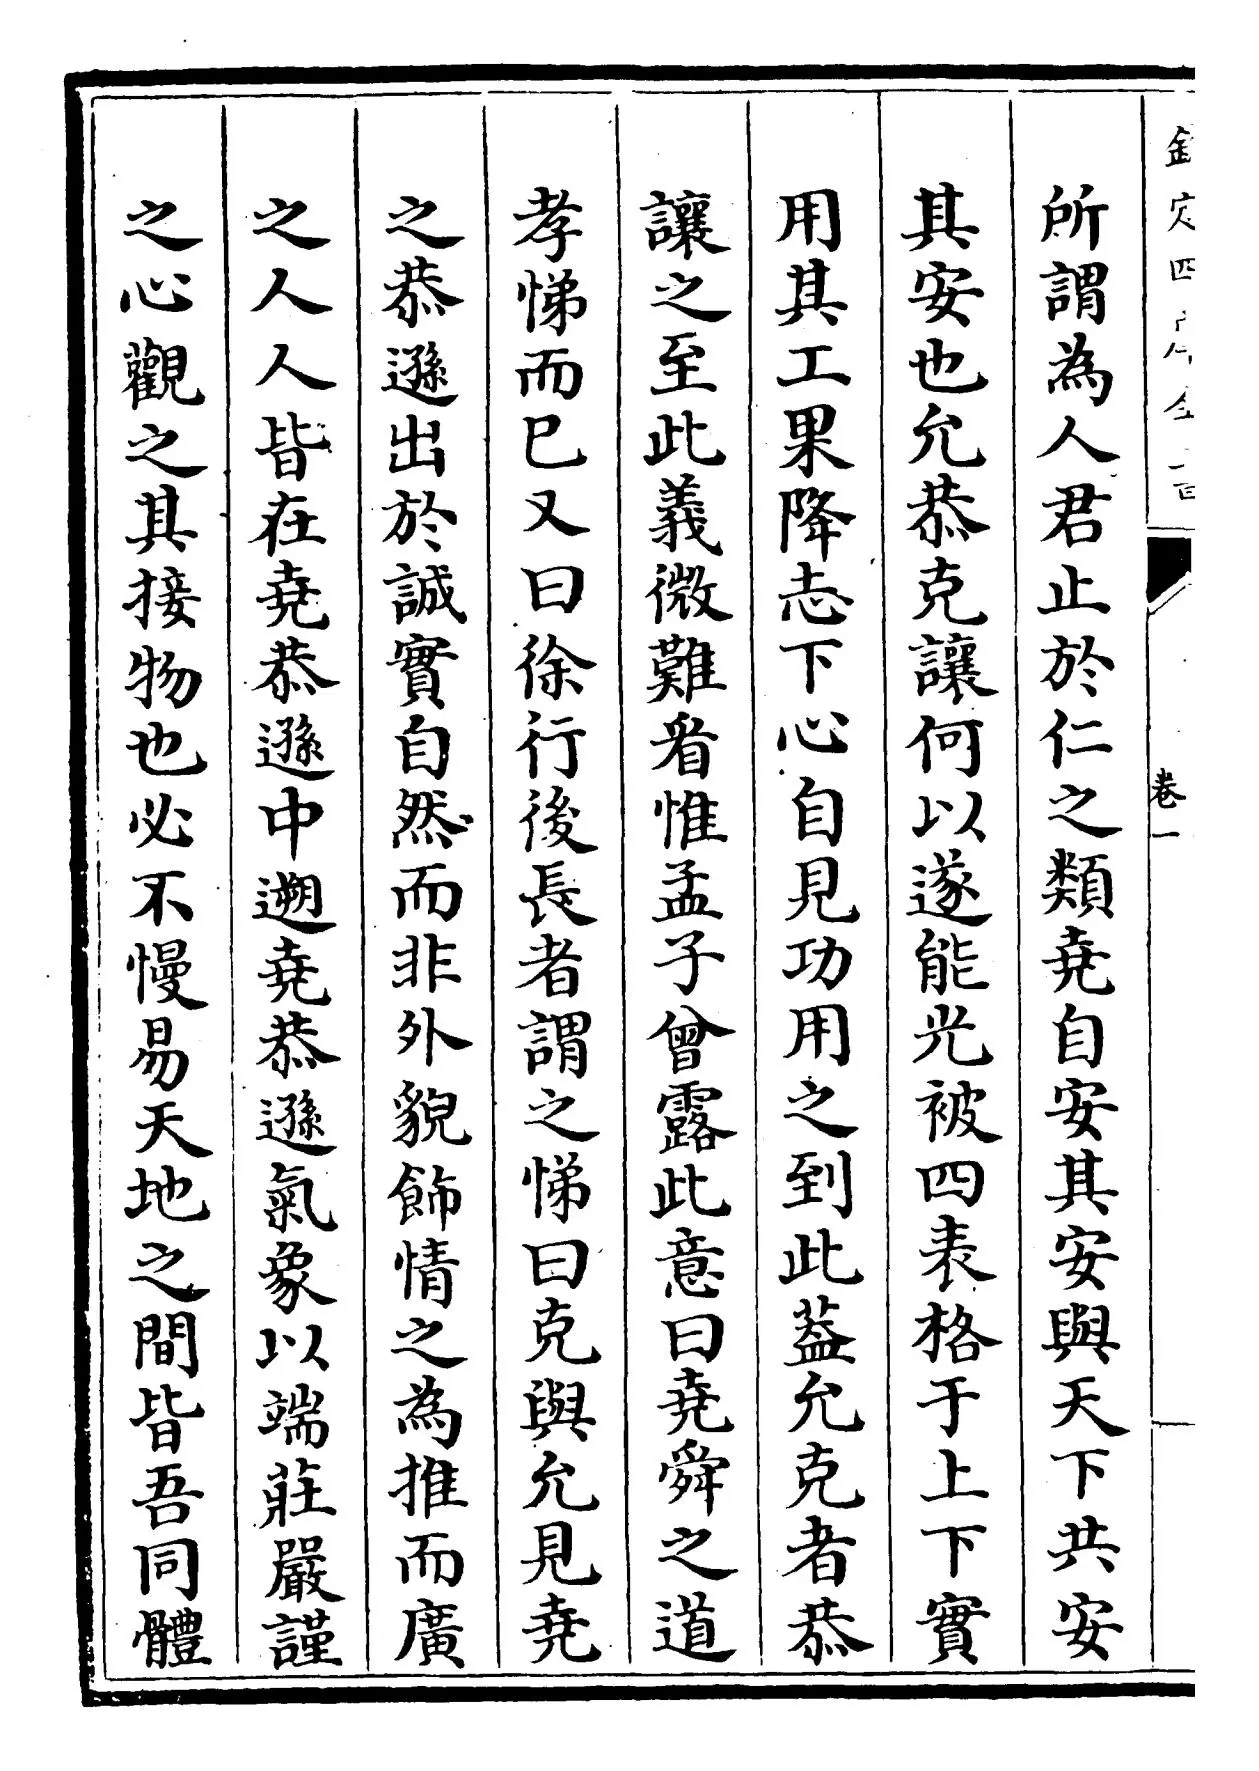 欽定四庫全書
卷一
所謂為人君止於仁之類堯自安其安與天下共安
其安也允恭克讓何以遂能光被四表格于上下實
用其工果降志下心自見功用之到此葢允克者恭
讓之至此義微難㸔惟孟子曾露此意曰堯舜之道
孝悌而已又曰徐行後長者謂之悌曰克與允見堯
之恭遜出於誠實自然而非外貌飾情之為推而廣
之人人皆在堯恭遜中遡堯恭遜氣象以端莊嚴謹
之心觀之其接物也必不慢易天地之間皆吾同體